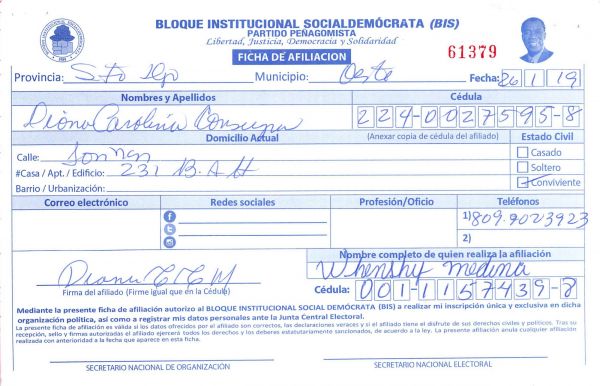 BLOQUE INSTITUCIONAL SOCIALDEMÓCRATA (BIS)
PARTIDO PEÑAGOMISTA
Libertad, Justicia, Democracia y Solidaridad
FICHA DE AFILIACION
61379
Provincia: Sto Dgo Municipio: Oeste Fecha: 26/1/19
Nombres y Apellidos Cédula
Diana Carolina 224-0027595-8
Domicilio Actual (Anexar copia de cédula del afiliado) Estado Civil
Calle:
Casado
#Casa / Apt. / Edificio: 231 B. A H
Soltero
Barrio / Urbanización:
Conviviente
Correo electrónico Redes sociales Profesión/Oficio Teléfonos
1) 809.9023923
2)
Nombre completo de quien realiza la afiliación
Whenshy Medina
Diana
Firma del afiliado (Firme igual que en la Cédula)
Cédula: 001-1157439-8
Mediante la presente ficha de afiliación autorizo al BLOQUE INSTITUCIONAL SOCIAL DEMÓCRATA (BIS) a realizar mi inscripción única y exclusiva en dicha
organización política, así como a registrar mis datos personales ante la Junta Central Electoral.
La presente ficha de afiliación es válida si los datos ofrecidos por el afiliado son correctos, las declaraciones veraces y si el afiliado tiene el disfrute de sus derechos civiles y políticos. Tras su
recepción, sello y firmas autorizadas el afiliado ejercerá todos los derechos y los deberes estatutariamente sancionados, de acuerdo a la ley. La presente afiliación anula cualquier afiliación
realizada con anterioridad a la fecha que aparece en esta ficha.
SECRETARIO NACIONAL DE ORGANIZACIÓN SECRETARIO NACIONAL ELECTORAL